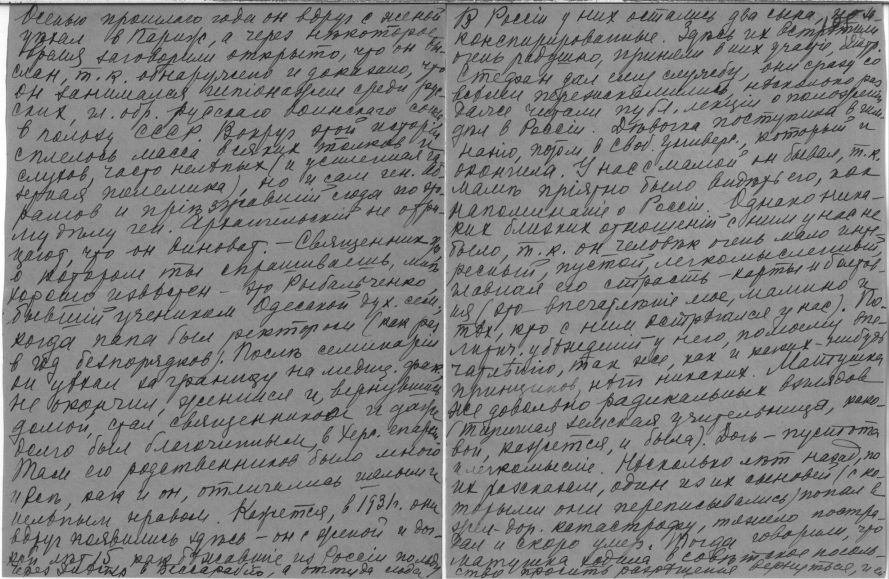 Осенью прошлаго года он вдруг с женой
уехал в Париж, а через некоторое
время заговорили открыто, что он вы-
слан, т.к. обнаружено и доказано, что
он занимался шпионажем среди рус-
ских, гл. обр. русскаго воинскаго союза
в пользу СССР. Вокруг этой истории
сплелось масса всяких толков и
слухов, часто нелепых (и усиленная га-
зетная полемика), но и сам ген. Аб-
рамов и приезжавший сюда по это-
му делу ген. Архангельский не отри-
цают, что он виноват. – Священник,
о котором ты спрашиваешь, мне
хорошо известен – это Рыбальченко
бывший учеником Одесской дух. сем.,
когда папа был ректором (как раз
в год безпорядков). После семинарии
он уехал за границу на медиц. фак.
не окончил, женился и, вернувшись
домой, стал священником и даже
долго был благочинным в Херс. епархии.
Там его родственников было много
и все, как и он, отличались
нелепым нравом. Кажется, в 1931 г. они
вдруг появились здесь – он с женой и доч-
кой лет 15 как бежавшие из России
через Днестр в Бессарабию, а оттуда сюда
В России у них остались два сына,
законспирированные. Здесь их встретили
очень радушно, приняли в них участие,
Стефан дал ему службу, они сразу со
всеми перезнакомились, несколько раз
даже читали публ. лекции о положении
дел в России. Девочка поступила в гим-
назию, потом в Своб. универс., который и
окончила. У нас с мамой он бывал, т.к.
маме приятно было видеть его, как
напоминание о России. Однако ника-
ких близких отношений с ним у нас не
было, т.к. он человек очень мало инте-
ресный, пустой, легкомысленный,
главная его страсть – карты и болтов-
ня (это – впечатление мое, мамино и
тех, кто с ним встречался у нас). По-
литич. убеждений у него, по моему впе-
чатлению, так же, как и каких-нибудь
принципов, нет никаких. Матушка
же довольно радикальных взглядов
(типичная земская учительница, како-
вой, кажется, и была). Дочь – пустота
и легкомыслие. Несколько лет назад, по
их рассказам, один из их сыновей (с ко-
торыми они переписывались) попал в
жел.-дор. катастрофу, тяжело постра-
дал и скоро умер. Тогда говорили, что
матушка ходила в советское посоль-
ство просить разрешения вернуться,